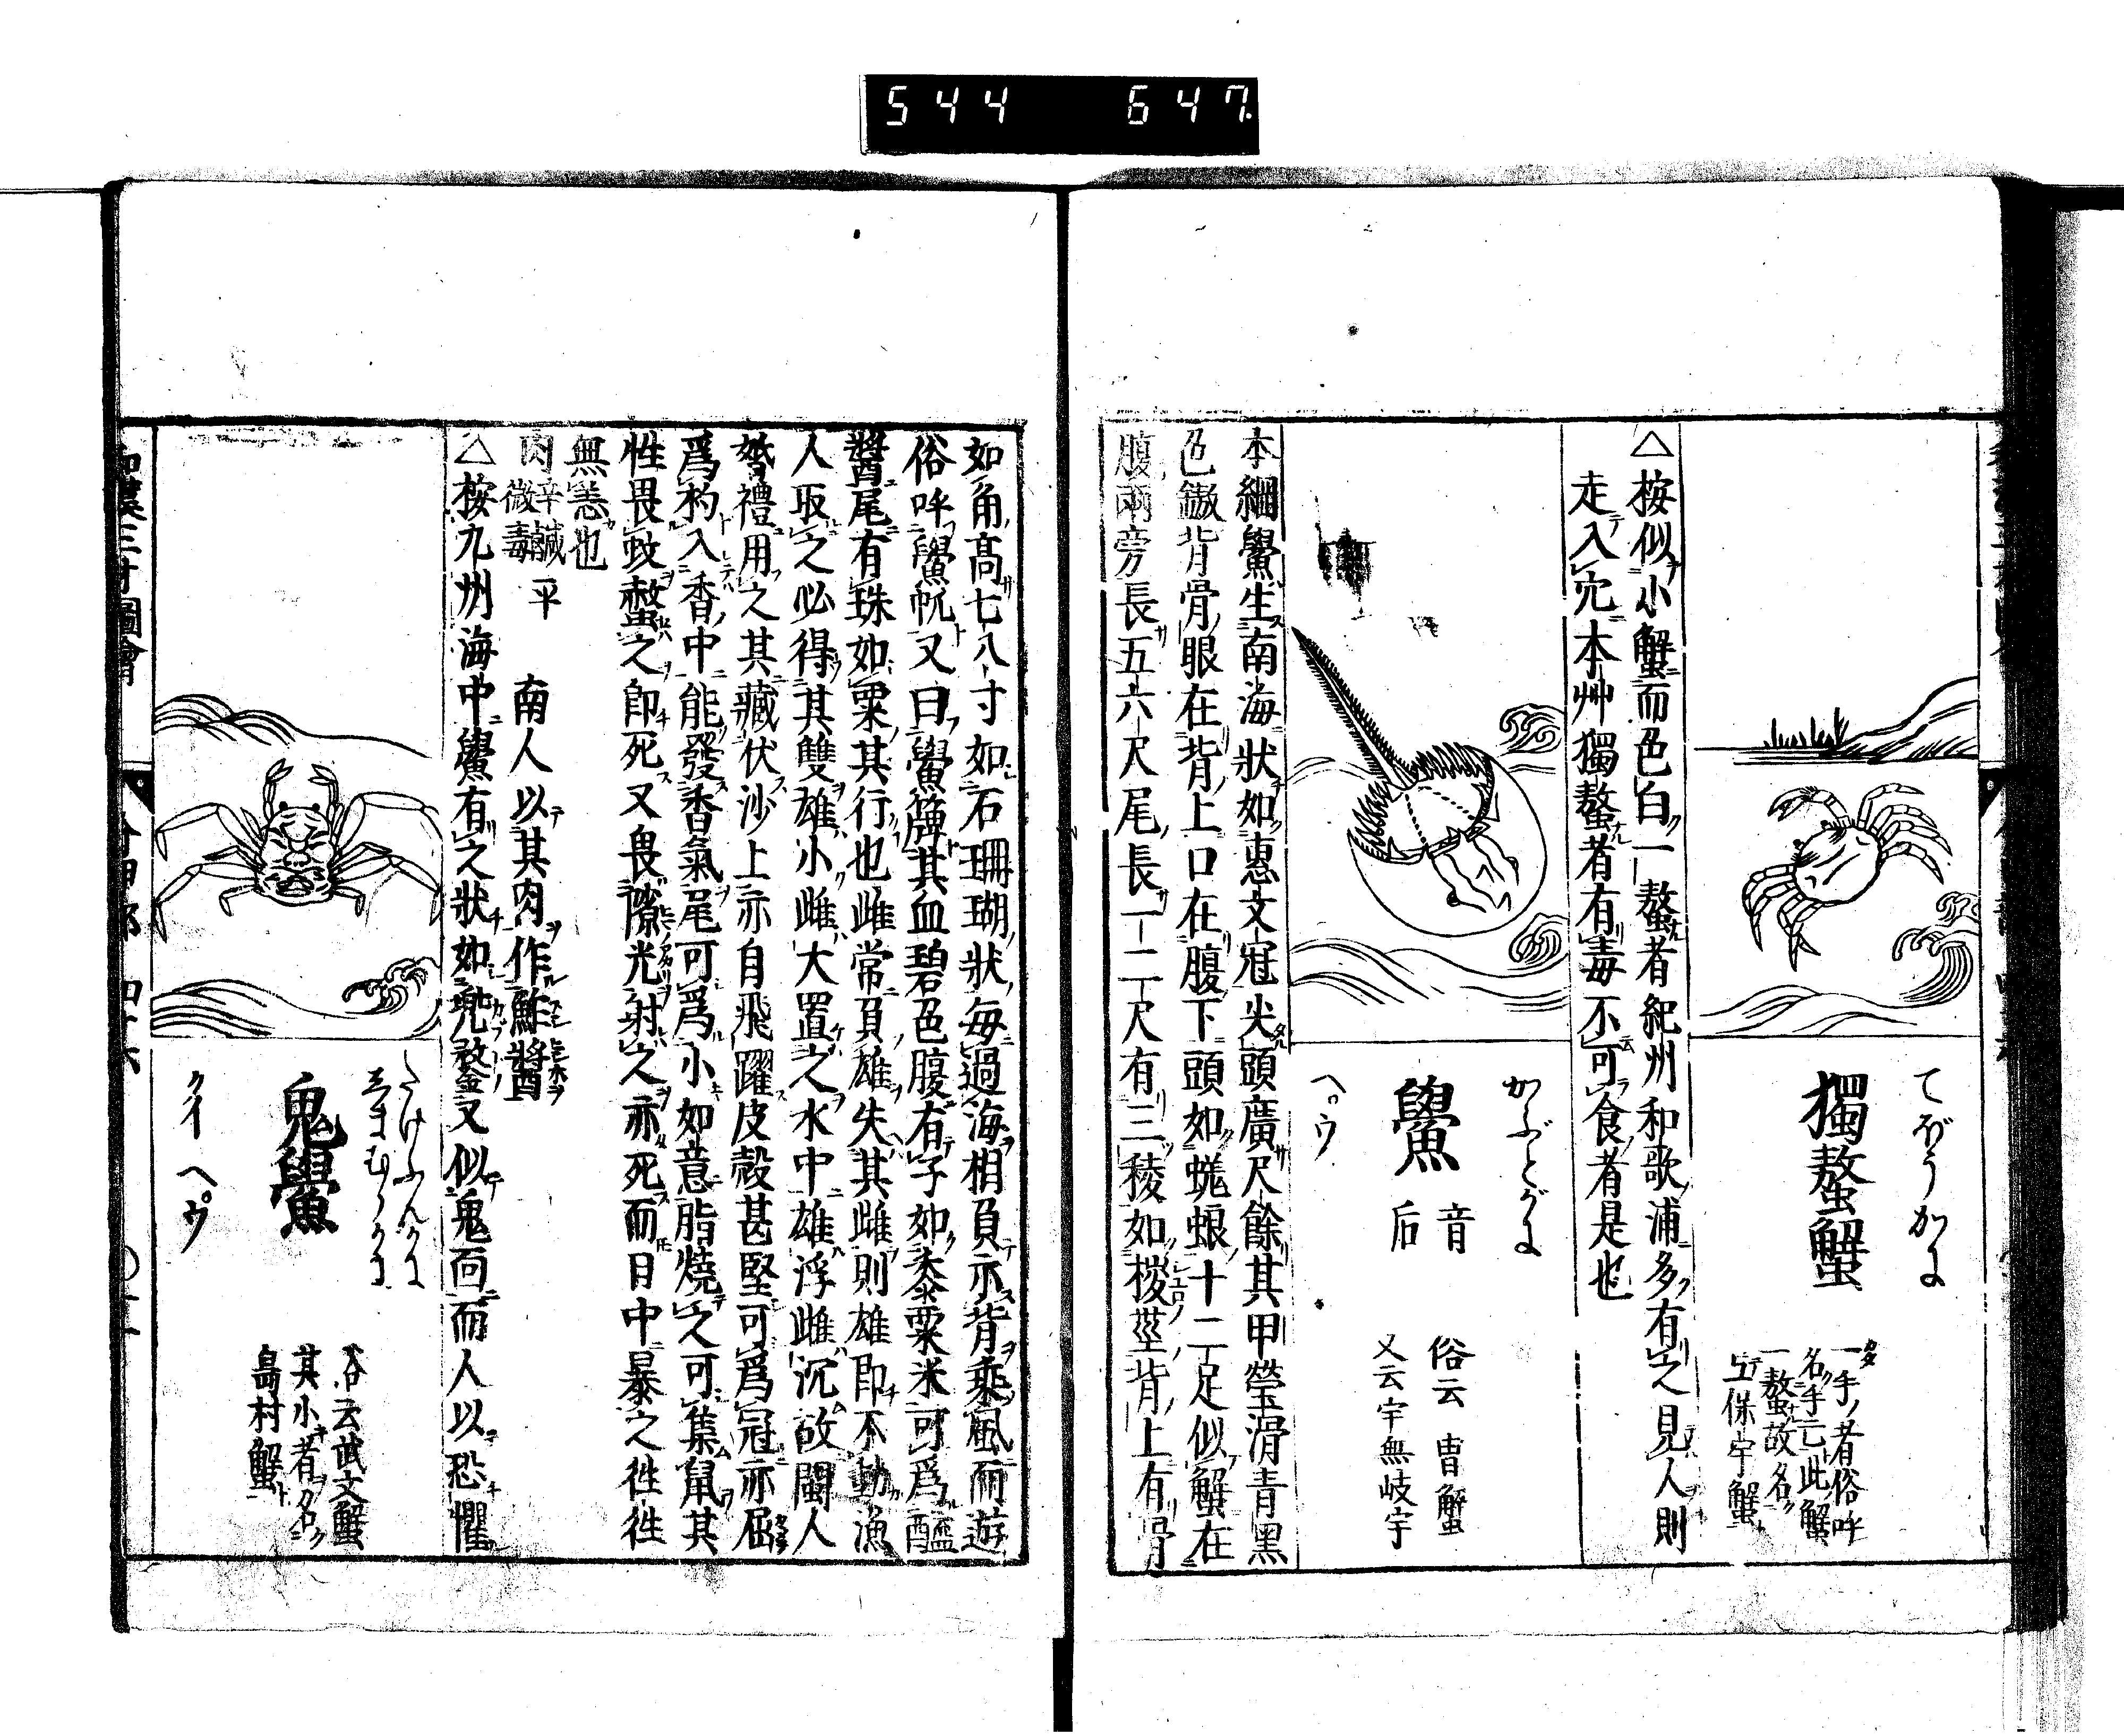 544 647
てぼうかに
獨螯蟹
一手者俗呼
名手亡此蟹
一螯故名
△按似小蟹而色白一螯者紀州和歌浦多有之見人則
走入穴本艸獨螯者有毒不可食者是也
かぶとがに
鱟
音
后
俗云 胄蟹
又云宇無岐宇
ヘ゜ウ
本綱鱟生南海狀如惠文冠尖頭廣尺餘其甲瑩滑青黑
色鏉背骨眼在背上口在腹下頭如蜣蜋十二足似蟹在
腹兩旁長五六尺尾長一二尺有三稜如椶莖背上有骨
如角高七八寸如石珊瑚狀每過海相負示背乘風而遊
俗呼鱟帆又曰鱟簰其血碧色腹有子如黍粟米可爲醯
醬尾有珠如粟其行也雌常負雄失其雌則雄即不動漁
人取之必得其雙雄小雌大置之水中雄浮雌沉故閩人
婚禮用之其藏伏沙上亦自飛躍皮殼甚堅可爲冠亦屈
爲杓入香中能發香氣尾可爲小如意脂燒之可集鼠其
性畏蚊螫之即死又畏隙光射之亦死而日中暴之徃徃
無恙也
肉 辛鹹 微毒 平 南人以其肉作鮓醬
△按九州海中鱟有之狀如兜鍪又似鬼面而人以恐懼
たけぶんがに
しまむらがに
鬼鱟
クイ ヘ゜ウ
俗云武文蟹
其小者名
島村蟹
和漢三才圖會